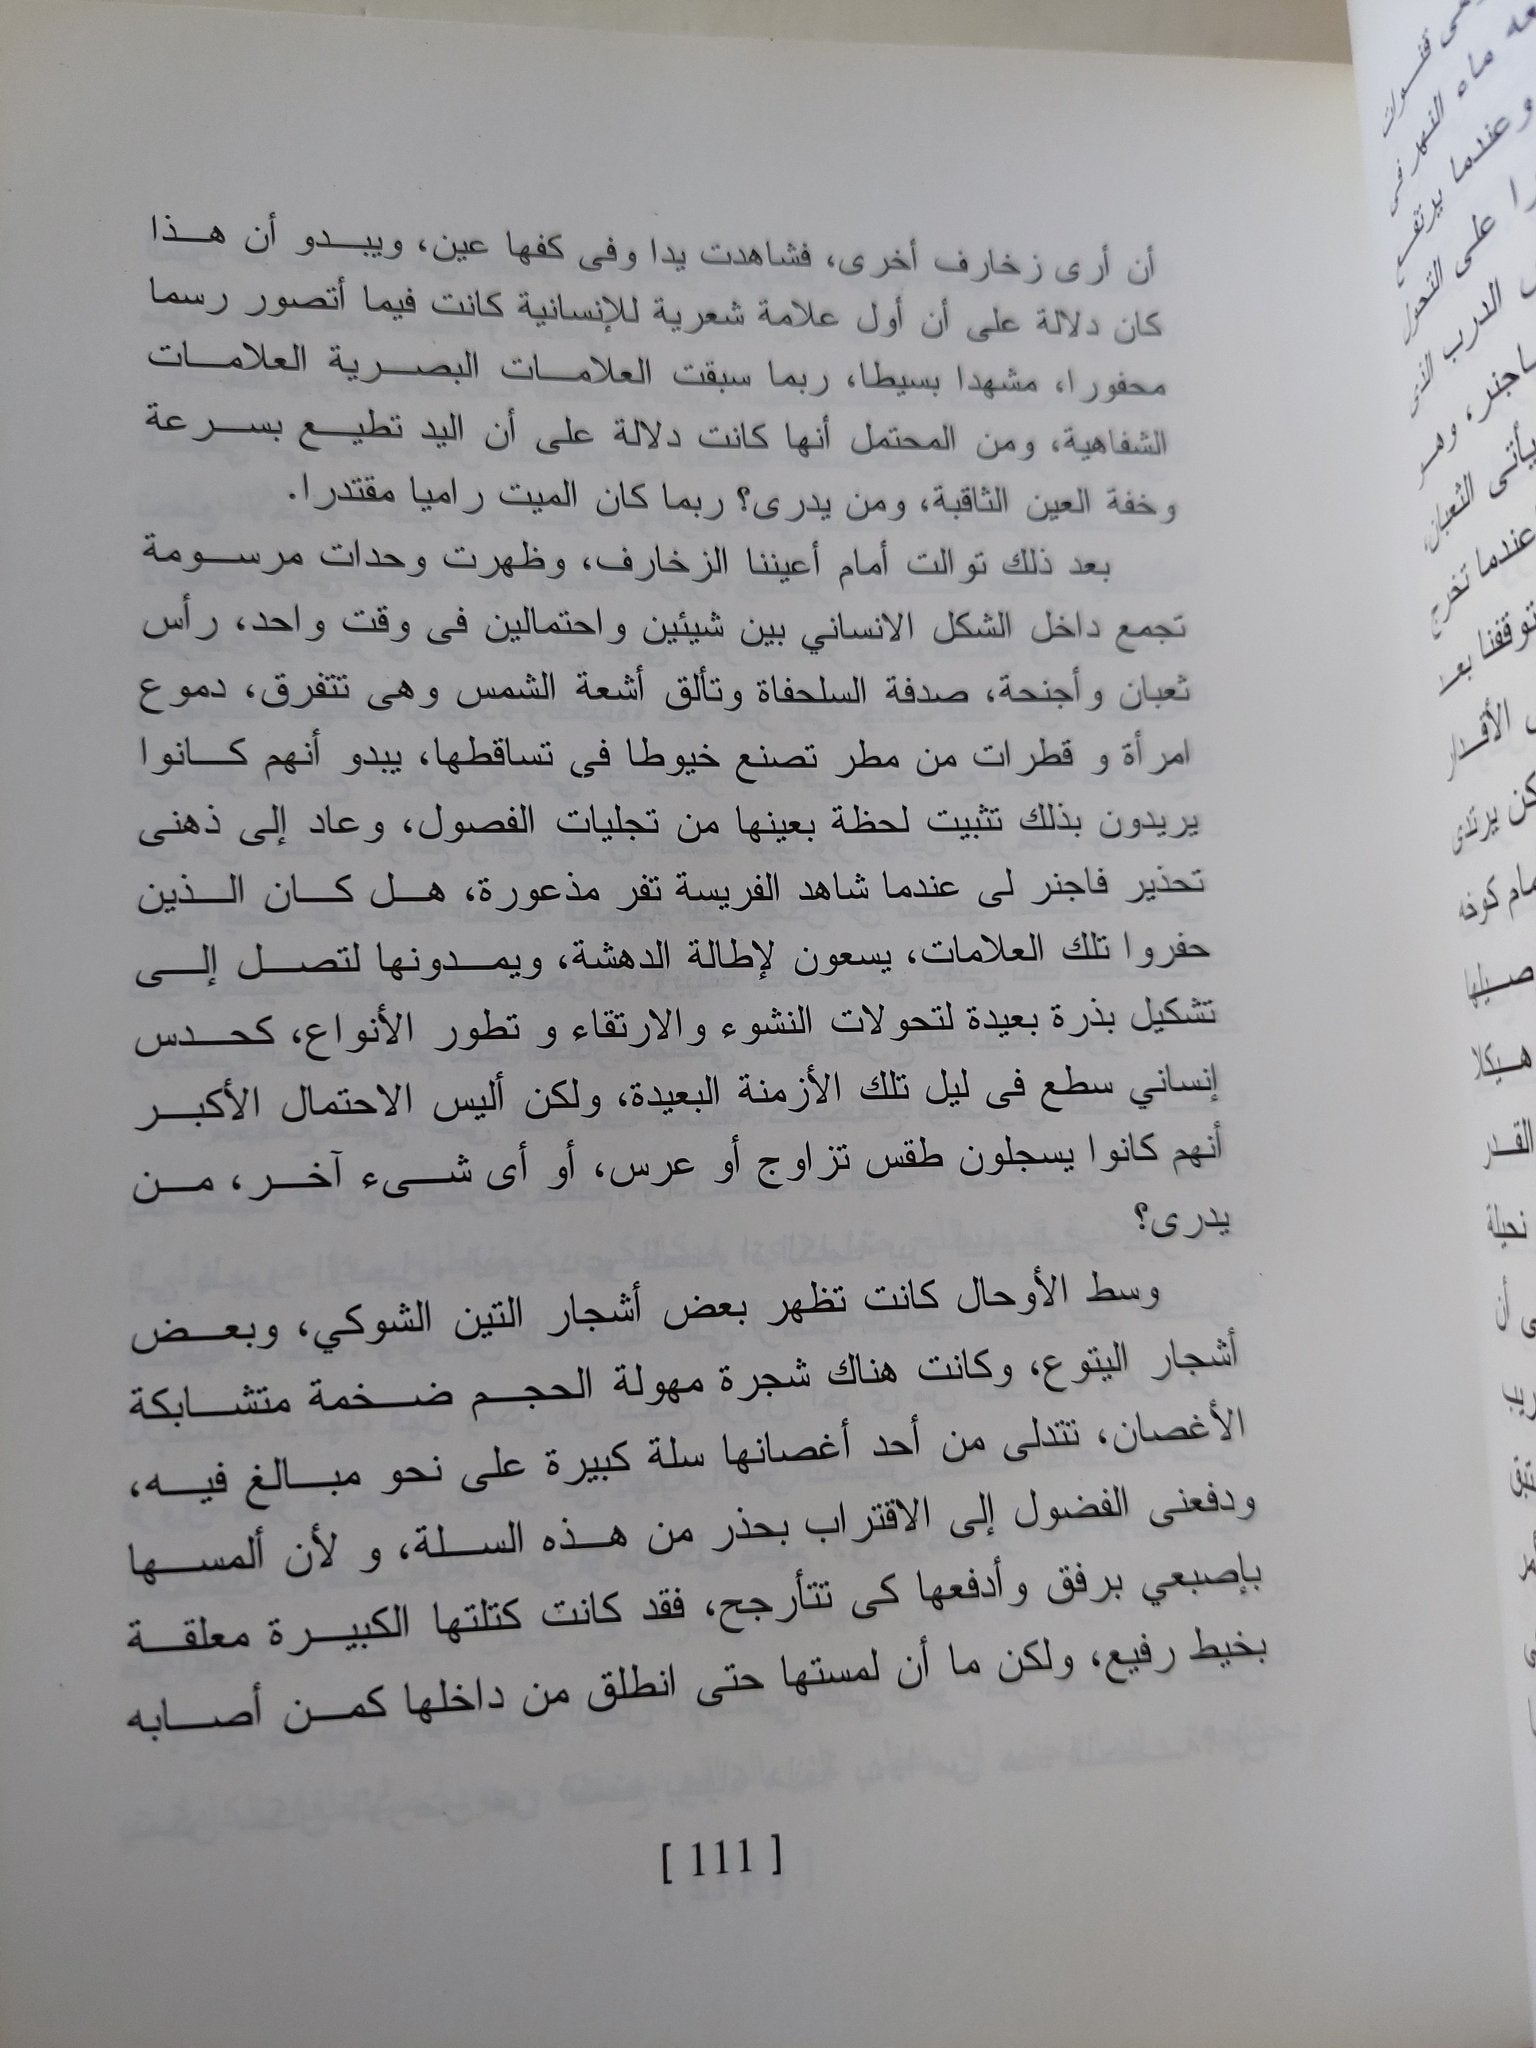 أن أرى زخارف أخرى، فشاهدت يدا وفى كفها عين، ويبدو أن هذا
كان دلالة على أن أول علامة شعرية للإنسانية كانت فيما أتصور رسما
محفورا، مشهدا بسيطا، ربما سبقت العلامات البصرية العلامات
الشفاهية، ومن المحتمل أنها كانت دلالة على أن اليد تطيع بسرعة
وخفة العين الثاقبة، ومن يدرى؟ ربما كان الميت راميا مقتدرا.
بعد ذلك توالت أمام أعيننا الزخارف، وظهرت وحدات مرسومة
تجمع داخل الشكل الانساني بين شيئين واحتمالين فى وقت واحد، رأس
ثعبان وأجنحة، صدفة السلحفاة وتألق أشعة الشمس وهى تتفرق، دموع
امرأة و قطرات من مطر تصنع خيوطا فى تساقطها، يبدو أنهم كانوا
يريدون بذلك تثبيت لحظة بعينها من تجليات الفصول، وعاد إلى ذهنى
تحذير فاجنر لى عندما شاهد الفريسة تفر مذعورة، هل كان الذين
حفروا تلك العلامات، يسعون لإطالة الدهشة، ويمدونها لتصل إلى
تشكيل بذرة بعيدة لتحولات النشوء والارتقاء و تطور الأنواع، كحدس
إنساني سطع فى ليل تلك الأزمنة البعيدة، ولكن أليس الاحتمال الأكبر
أنهم كانوا يسجلون طقس تزاوج أو عرس، أو أى شىء آخر، من
يدرى؟
وسط الأوحال كانت تظهر بعض أشجار التين الشوكي، وبعض
أشجار اليتوع، وكانت هناك شجرة مهولة الحجم ضخمة متشابكة
الأغصان، تتدلى من أحد أغصانها سلة كبيرة على نحو مبالغ فيه،
ودفعنى الفضول إلى الاقتراب بحذر من هذه السلة، و لأن ألمسها
بإصبعي برفق وأدفعها كى تتأرجح، فقد كانت كتلتها الكبيرة معلقة
بخيط رفيع، ولكن ما أن لمستها حتى انطلق من داخلها كمن أصابه
[ 111 ]
ماء النهار فى
وعندما يرتفع
على التحول
الدرب الذى
وهو
يأتى الثعبان
عندما تخرج
توقفنا بعد
الأقدار
يرتدى
كوخه
هيكلا
القدر
نحيلة
أن